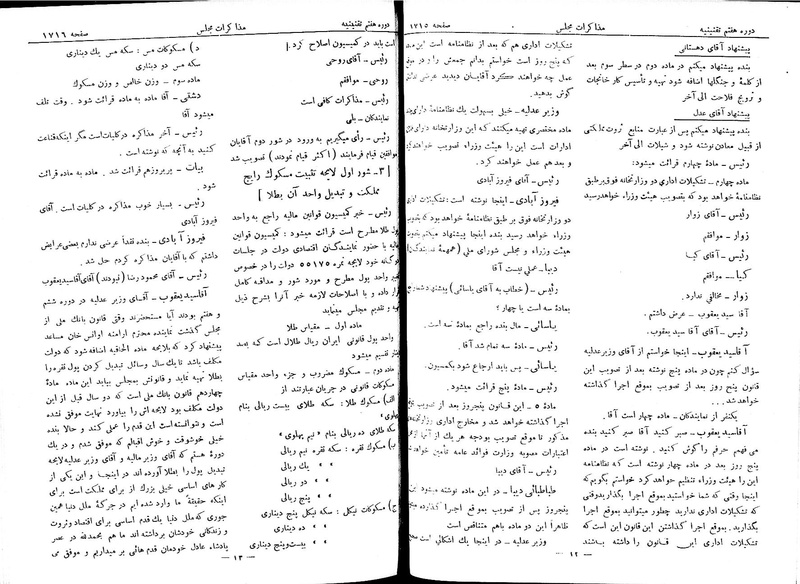 دوره هفتم تقنینیه
مذاکرات مجلس
صفحه ۱۷۱۵
پیشنهاد آقای دهستانی
بنده پیشنهاد میکنم در ماده دوم در سطر سوم بعد
از کلمهٔ و جنگلها اضافه شود تهیه و تأسیس کار خانجات
و ترویج فلاحت الی آخر
پیشنهاد آقای عدل
بنده پیشنهاد میکنم پس از عبارت منابع ثروت مملکتی
از قبیل معادن نوشته شود و شیلات الی آخر
رئیس – مادهٔ چهارم قرائت میشود:
ماده چهارم – تشکیلات اداری دو وزارتخانه فوق بر طبق
نظامنامهٔ خواهد بود که بتصویب هیئت وزراء خواهد رسید
رئیس – آقای زوار
زوار – موافقم
رئیس – آقای کیا
کیا – موافقم
زوار – مخالفی ندارد.
آقا سید یعقوب – عرض داشتم.
رئیس – آقای آقا سید یعقوب.
آقا سید یعقوب – اینجا خواستم از آقای وزیر عدلیه
سؤال کنم چون در ماده پنج نوشته بعد از تصویب این
قانون پنج روز بعد از تصویب بموقع اجرا گذاشته
خواهد شد...
یکنفر از نمایندگان – ماده چهار است آقا.
آقا سید یعقوب – صبر کنید آقا صبر کنید بنده
می فهمم حرفم را گوش کنید. نوشته است در ماده
پنج روز بعد در ماده چهار نوشته است که نظامنامه
این را هیئت وزراء تنظیم خواهد کرد خواستم بگویم که
اینجا وقتی که شما خواستید بموقع اجرا بگذارید وقتی
که تشکیلات اداری ندارید چطور میتوانید بموقع اجرا
بگذارید. بموقع اجرا گذاشتن این قانون این است که
تشکیلات اداری این قانون را داشته باشند
تشکیلات اداری هم که بعد از نظامنامه است این
که پنج روز است خواستم بدانم جمعش را و در موقع
عمل چه خواهند کرد آقایان دیدید عرضی نداشتم
گوش بدهید.
وزیر عدلیه – خیل بسهولت یك نظامنامهٔ دارای
ماده مختصری تهیه میکنند که این وزارتخانه دارای
ادارات است این را هیئت وزراء تصویب خواهند کرد
و بعد هم عمل خواهند کرد.
رئیس – آقای فیروز آبادی
فیروز آبادی – اینجا نوشته است: تشکیلات اداری
دو وزارتخانه فوق بر طبق نظامنامهٔ خواهد بود که بتصویب
وزراء خواهد رسید بنده اینجا پیشنهاد میکنم بتصویب
هیئت وزراء و مجلس شورای ملی (همهمهٔ نمایندگان)
دیبا – عملی نیست آقا
رئیس – (خطاب به آقای یاسائی) پیشنهاد شما راجع
بمادهٔ سه است یا چهار؟
یاسائی – مال بنده راجع بمادهٔ سه است.
رئیس – مادهٔ سه تمام شد آقا.
یاسائی – پس باید ارجاع شود بکمسیون.
رئیس – مادهٔ پنج قرائت میشود.
ماده ۵ – این قانون پنجروز بعد از تصویب بموقع
اجرا گذاشته خواهد شد و مخارج اداری وزارتخانه
مذکور تا موقع تصویب بودجه هر یك از آنها از
اعتبارات مصوبه وزارت فوائد عامه تأمین خواهد
رئیس – آقای دیبا
طباطبائی دیبا – در این ماده نوشته میشود این
پنجروز پس از تصویب بموقع اجرا گذارده میشود
ظاهراً این دو ماده باهم متناقض است
وزیر عدلیه – در اینجا یك اشکالی است
– ۱۲ –
دوره هفتم تقنینیه
مذاکرات مجلس
صفحه ۱۷۱۶
است باید در کمیسیون اصلاح کرد.
رئیس – آقای روحی
روحی – موافقم
رئیس – مذاکرات کافی است
نمایندگان – بلی
رئیس – رأی میگیریم به ورود در شور دوم آقایان
موافقین قیام فرمایند (اکثر قیام نمودند) تصویب شد
[ ۳ – شور اول لایحه تثبیت مسکوك رایج
مملکت و تبدیل واحد آن بطلا ]
رئیس – خبر کمیسیون قوانین مالیه راجع به واحد
پول طلا مطرح است قرائت میشود: کمیسیون قوانین
مالیه با حضور نمایندگان اقتصادی دولت در جلسات
خود لایحه نمره ۵۵۱۷۵ دولت را در خصوص
تغییر واحد پول مطرح و مورد شور و مداقه کامل
قرار داده و با اصلاحات لازمه خبر آنرا بشرح ذیل
و تقدیم مجلس مینماید
ماده اول – مقیاس طلا
واحد پول قانونی ایران ریال طلاست که بصد
دینار تقسیم میشود
ماده دوم – مسکوك مضروب و جزء واحد مقیاس
مسکوکات قانونی در جریان عبارتند از
الف) مسکوك طلا: سکه طلای بیست ریالی بنام
پهلوی»
سکهٔ طلای ده ریالی بنام «نیم پهلوی»
ب) مسکوك نقره: سکه نقره نیم ریالی
» » یك ریالی
» » دو ریالی
» » پنج ریالی
ج) مسکوکات نیکل: سکه نیکل پنج دیناری
» » ده دیناری
» » بیست و پنج دیناری
د) مسکوکات مس: سکه مس یك دیناری
سکه مس دو دیناری
ماده سوم – وزن خالص و وزن مسکوك
دشتی – آقا ماده به ماده قرائت شود. وقت تلف
میشود آقا
رئیس – آخر مذاکره در کلیات است مگر اینکه قناعت
کنید به آنچه که نوشته است.
بیات – پریروز هم قرائت شد. ماده به ماده قرائت
شود.
رئیس – بسیار خوب مذاکره در کلیات است. آقای
فیروز آبادی
فیروز آبادی – بنده نقداً عرضی ندارم بعضی عرایض
داشتم که با آقایان مذاکره کردم حل شد.
رئیس – آقای محمود رضا (نبودند) آقای آقا سید یعقوب
آقا سید یعقوب – آقای وزیر عدلیه در دوره ششم
و هفتم بودند آیا مستحضرند وقتی قانون بانك ملی از
مجلس گذشت نماینده محترم ارامنه اوانس خان مساعد
پیشنهاد کرد که بلایحه ماده الحاقیه اضافه شود که دولت
مکلف باشد تا یك سال وسائل تبدیل کردن پول نقره را
بطلا تهیه نماید و قانونش بمجلس بیاید این ماده مادهٔ
چهاردهم قانون بانك ملی است که دو سال قبل از این
دولت مکلف بود لایحه اش را بیاورد نهایت موفق نشده
است و نتوانسته است این قدم را عملی کند و حالا بنده
خیلی خوشوقت و خوش اقبالم که موفق شدم و در یك
دورهٔ هستم که آقای وزیر مالیه و آقای وزیر عدلیه لایحه
تبدیل پول را بطلا آورده اند در اینجا و این یکی از
کار های اساسی خیل بزرك از برای مملکت است برای
اینکه حقیقة ما وارد شده ایم در جرگهٔ ملل دنیا همین
جوری که ملل دنیا یك قدم اساسی برای اقتصاد و ثروت
و زندگانی خودشان برداشته اند ما هم بحمدلله در عصر
پادشاه عادل خودمان قدم هائی بر میداریم و موفق می
– ۱۳ –